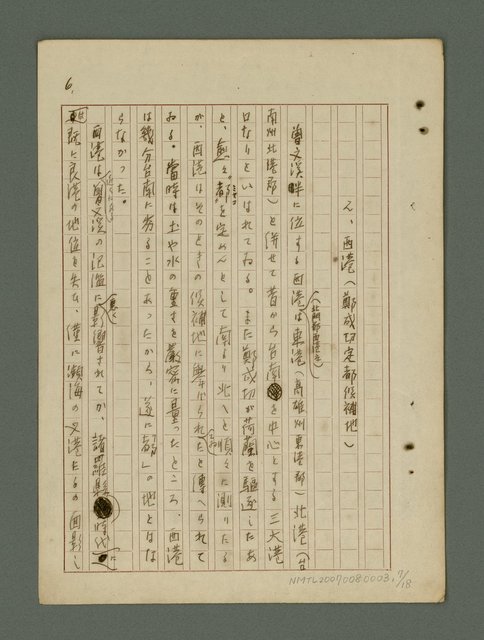 6.
え、西港(鄭成功定都候補地)
曾文溪畔に位する西港(北門郡西港庄)は東港(高雄州東港郡)北港(台
南州北港郡)と併せて昔から台南を中心とする三大港
口なりといはれてゐる。また鄭成功が荷蘭を驅逐したあ
と、愈々"都"を定めんとして南より北へと順々に測りたる
が、西港はそのときの候補地に擧げられたと傳へられて
ゐる。當時は土や水の重さを嚴密に量ったところ、西港
は幾分台南に劣ることあったから、遂に「都」の地とはな
らなかった。
西港は曾文溪の氾濫に影響されてか、諸羅縣時代に
既に良港の地位を失ひ、僅に瀕海の叉港たるの面影し
NMTL20070080003. 7/18